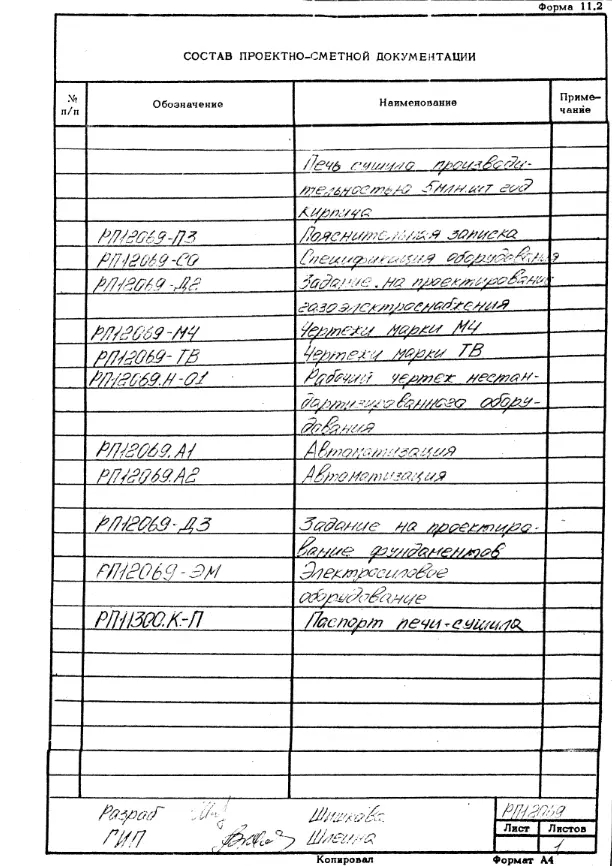 Форма 11.2
СОСТАВ ПРОЕКТНО-СМЕТНОЙ ДОКУМЕНТАЦИИ
№ п/п Обозначение Наименование Приме-
чание
Печь сушила производи-
тельностью 5млн.шт год
кирпича
РП12069-ПЗ Пояснительная записка
РП12069-СО Спецификация оборудования
РП12069-Д2 Задание на проектирование
газоэлектроснабжения
РП12069-МЧ Чертежи марки МЧ
РП12069-ТВ Чертежи марки ТВ
РП12069.Н-01 Рабочий чертеж нестан-
дартизированного обору-
дования
РП12069.А1 Автоматизация
РП12069.А2 Автоматизация
РП12069-ДЗ Задание на проектиро-
вание фундаментов
РП12069-ЭМ Электросиловое
оборудование
РП11300.К-П Паспорт печи-сушила
Разраб Шишкова РП12069
ГИП Шлеина Лист Листов
1
Копировал Формат А4